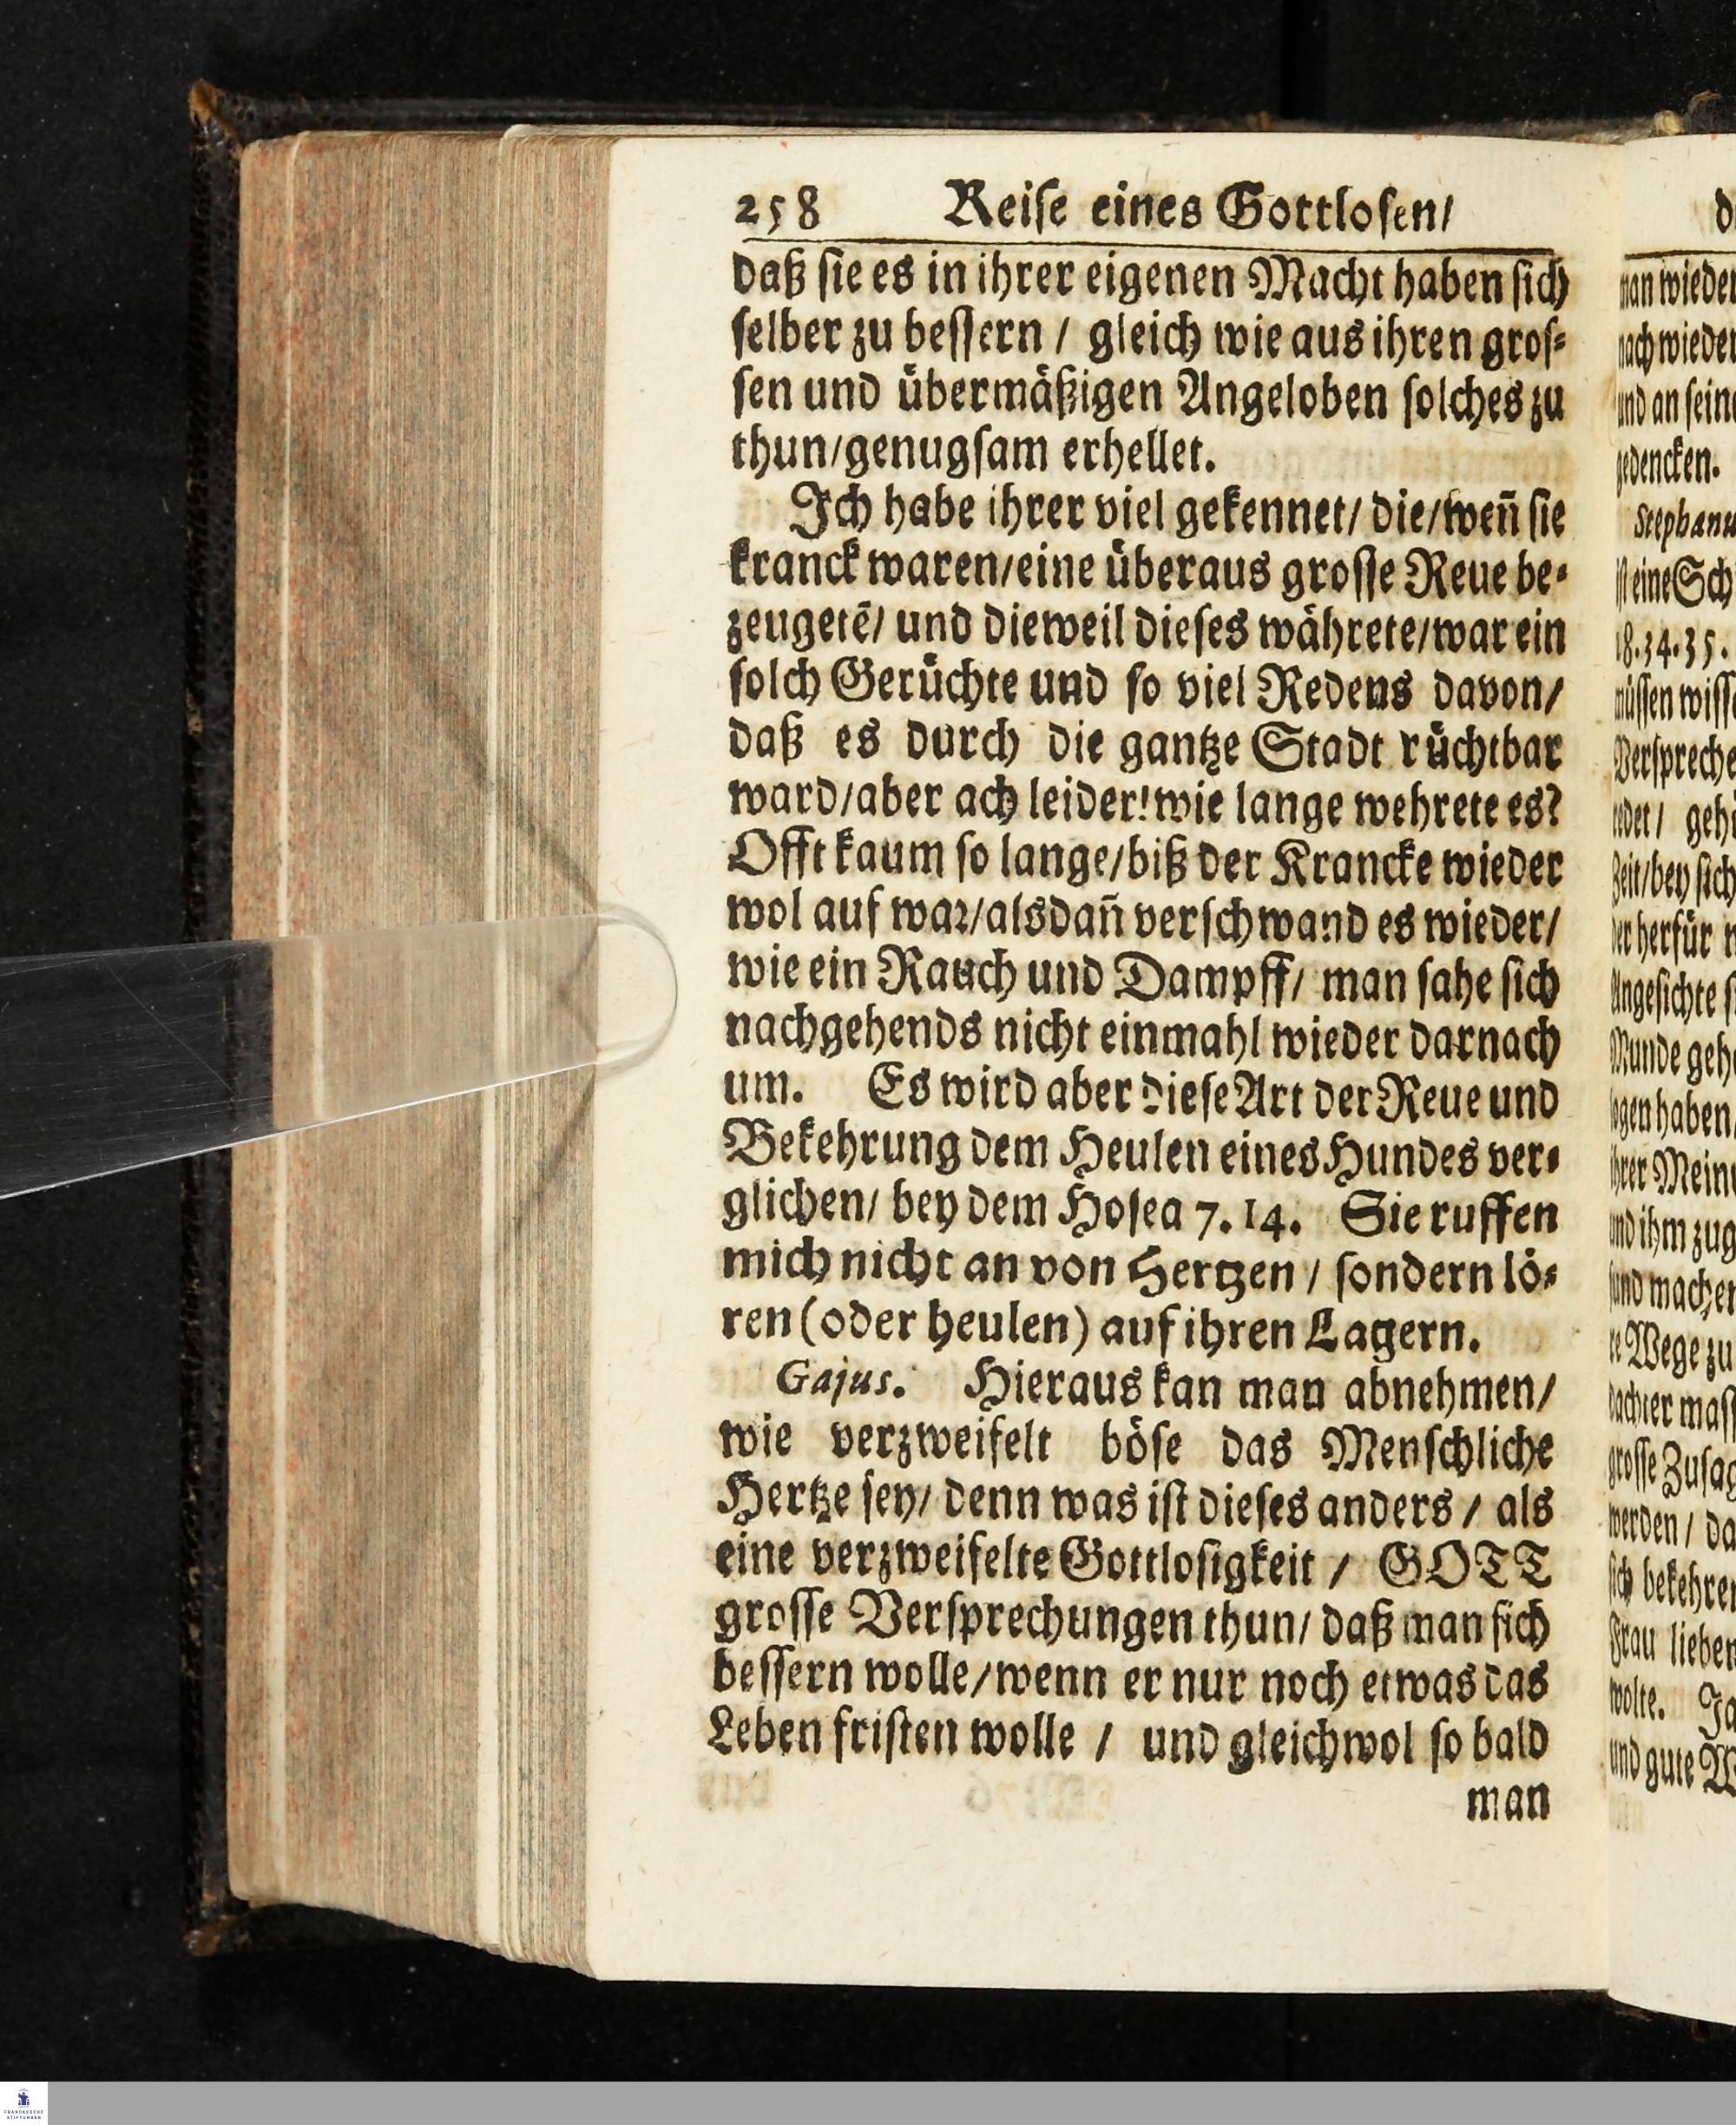 258 Reise eines Gottlosen/
daß sie es in ihrer eigenen Macht haben sich
selber zu bessern / gleich wie aus ihren gros⸗
sen und übermäßigen Angeloben solches zu
thun/genugsam erhellet.
Ich habe ihrer viel gekennet/ die/wen̄ sie
kranck waren/eine überaus grosse Reue be⸗
zeugetē/ und dieweil dieses währete/war ein
solch Gerüchte und so viel Redens davon/
daß es durch die gantze Stadt rüchtbar
ward/aber ach leider! wie lange wehrete es?
Offt kaum so lange/biß der Krancke wieder
wol auf war/alsdan̄ verschwand es wieder/
wie ein Rauch und Dampff/ man sahe sich
nachgehends nicht einmahl wieder darnach
um. Es wird aber diese Art der Reue und
Bekehrung dem Heulen eines Hundes ver⸗
glichen/ bey dem Hosea 7. 14. Sie ruffen
mich nicht an von Hertzen / sondern lö⸗
ren (oder heulen) auf ihren Lagern.
Gajus. Hieraus kan man abnehmen/
wie verzweifelt böse das Menschliche
Hertze sey/ denn was ist dieses anders / als
eine verzweifelte Gottlosigkeit / GOTT
grosse Versprechungen thun/ daß man sich
bessern wolle/wenn er nur noch etwas das
Leben fristen wolle / und gleichwol so bald
man
man wieder
nach wieder
und an seine
gedencken.
Stephanu
ist eine Sch
18. 34. 35.
müssen wisse
Verspreche
redet / gehe
Zeit/bey sich
der herfür
Angesichte
Munde gehe
legen haben/
ihrer Mein
und ihm zug
und machen
re Wege zu
dachter mass
grosse Zusag
werden / da
sich bekehren
Frau lieben
wolte. Ja
und gute
FRANCKESCHE
STIFTUNGEN